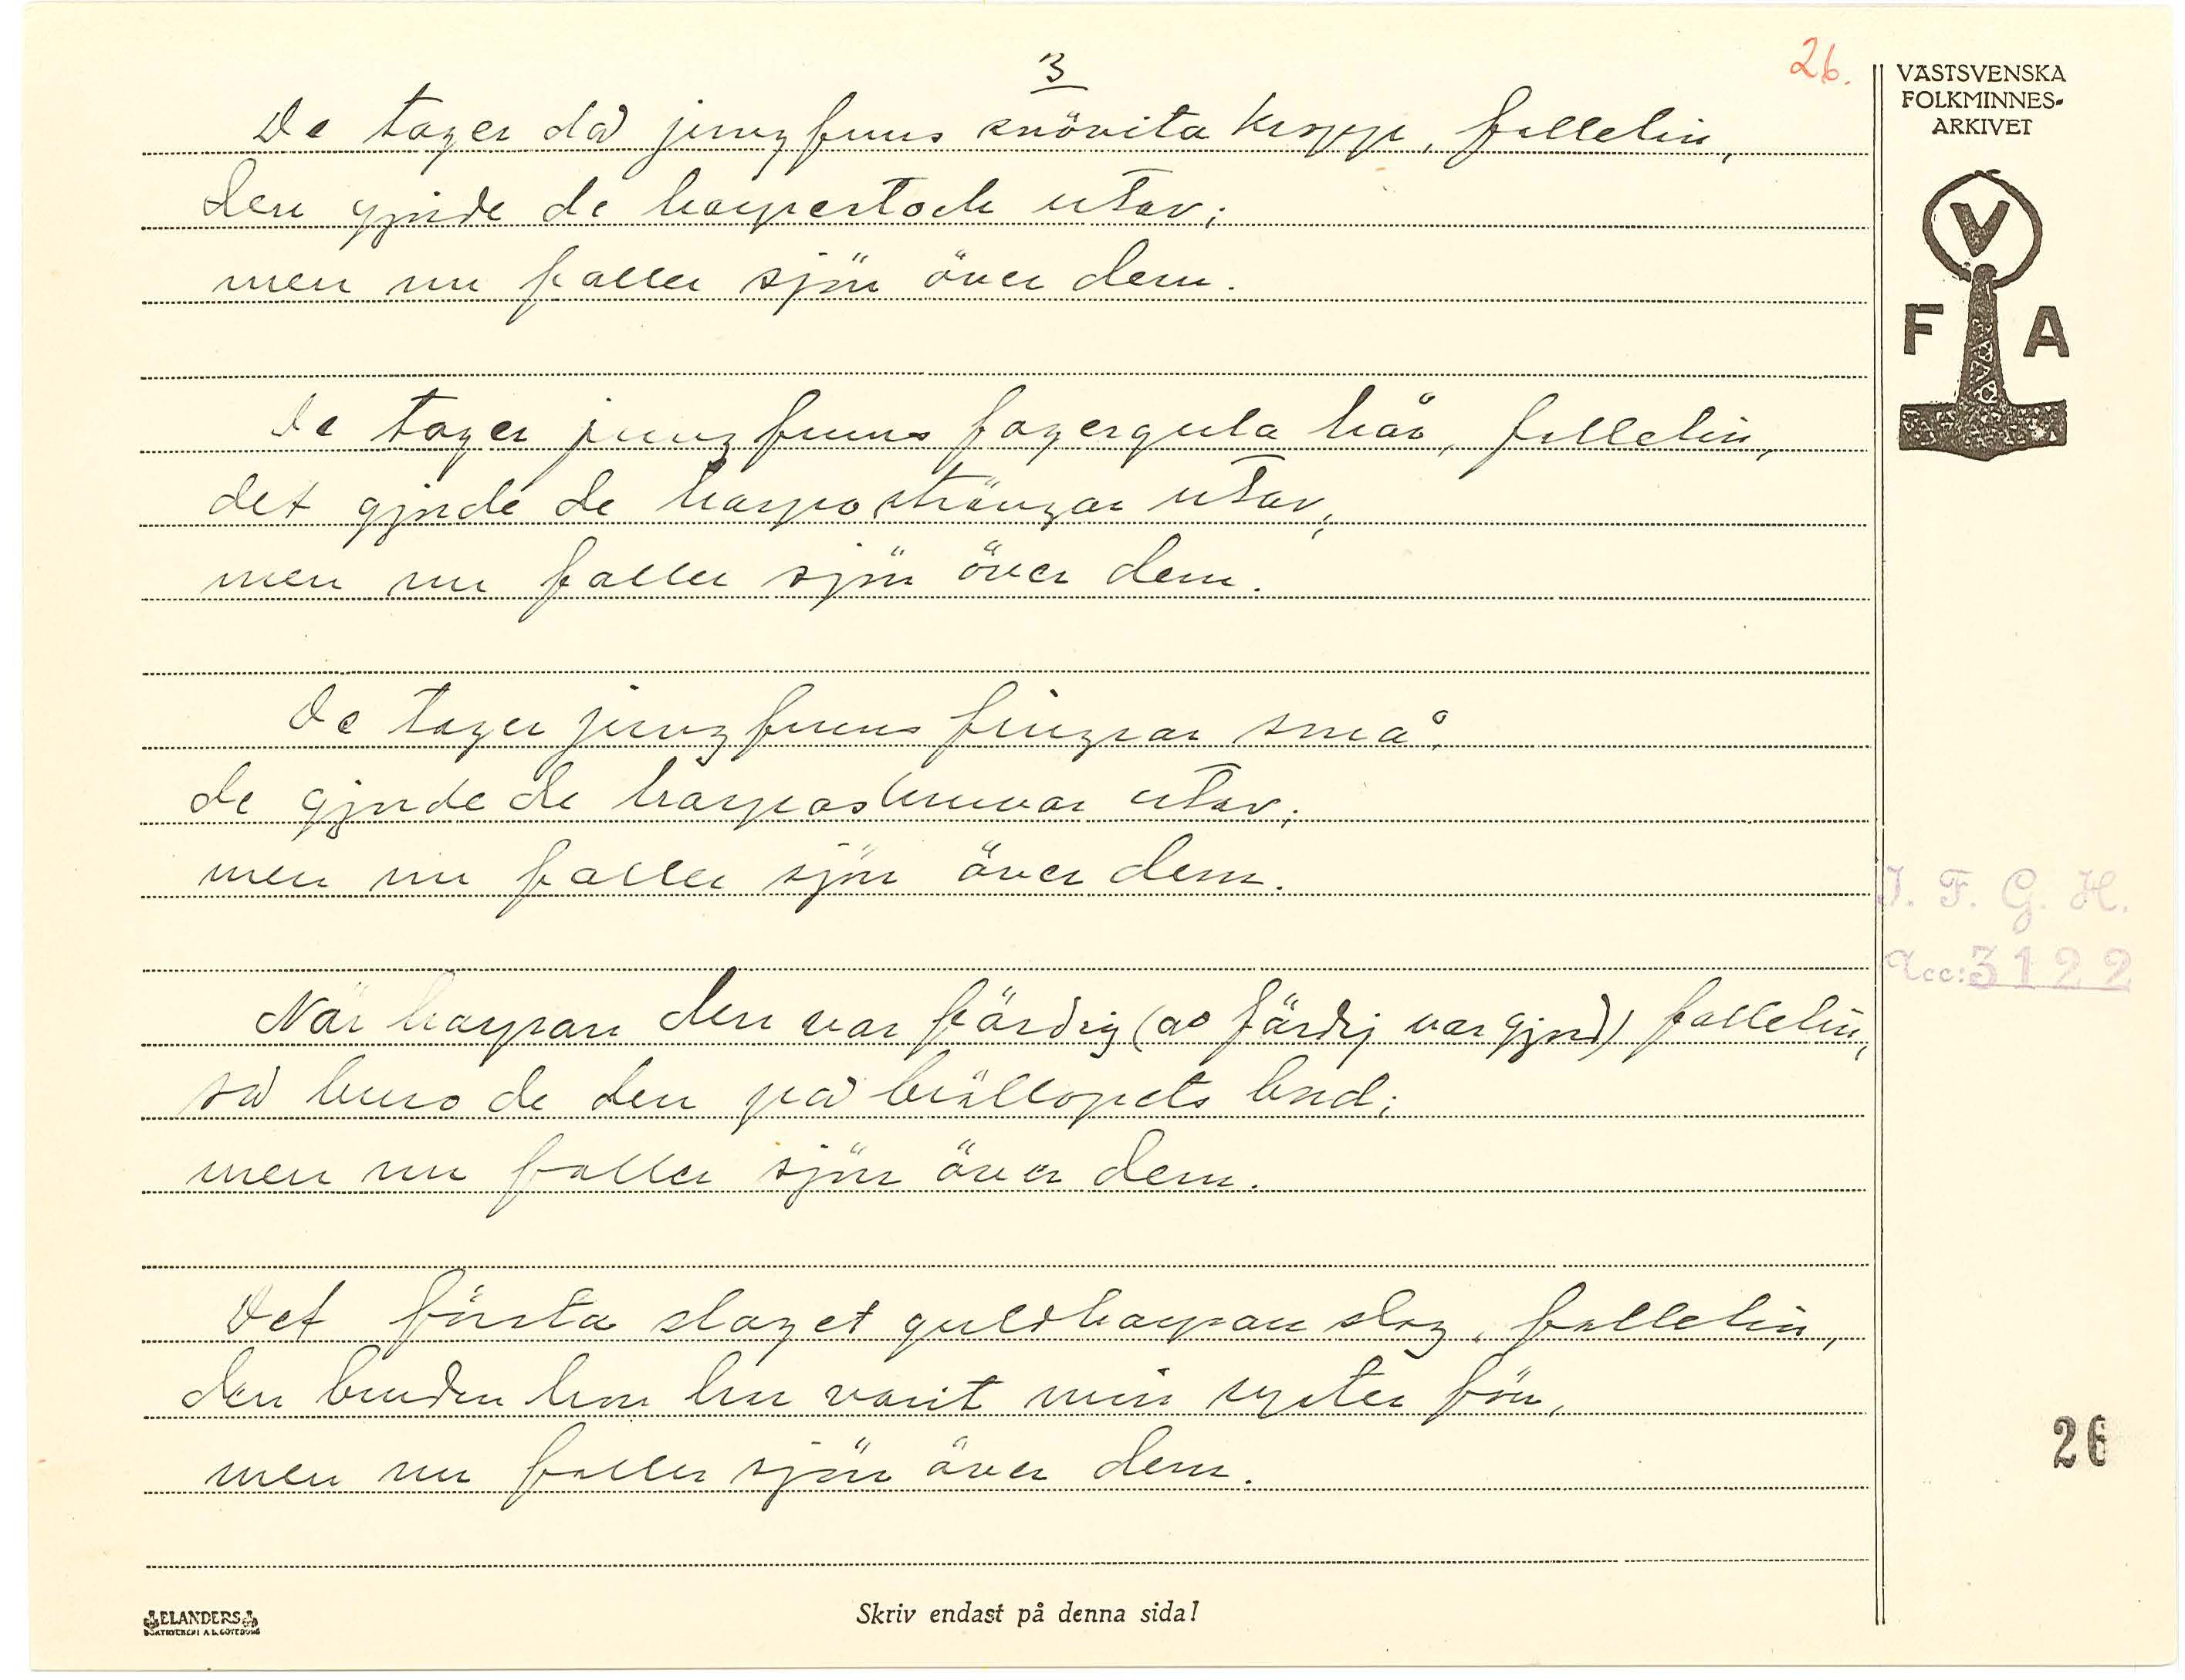 3
26.
De tager då jungfruns snövita kropp, fallelin,
den gjorde de harpestock utav;
men nu faller sjön över dem.
De tager jungfruns fagergula hår, fallelin,
det gjorde de harposträngar utav;
men nu faller sjön över dem.
De tager jungfruns fingrar små,
de gjorde de harposkruvar utav;
men nu faller sjön över dem.
När harpan den var färdig (as färdig var gjord) fallelin,
så buro de den på bröllopets bord;
men nu faller sjön över dem.
Det första slaget guldharpan slog, fallelin,
den bruden hon har varit min syster förr,
men nu faller sjön över dem.
VÄSTSVENSKA
FOLKMINNES-
ARKIVET
V
F A
I. F. G. H.
Acc: 3122
26
ELANDERS
BOKTRYCKERI A.B. GÖTEBORG
Skriv endast på denna sida!